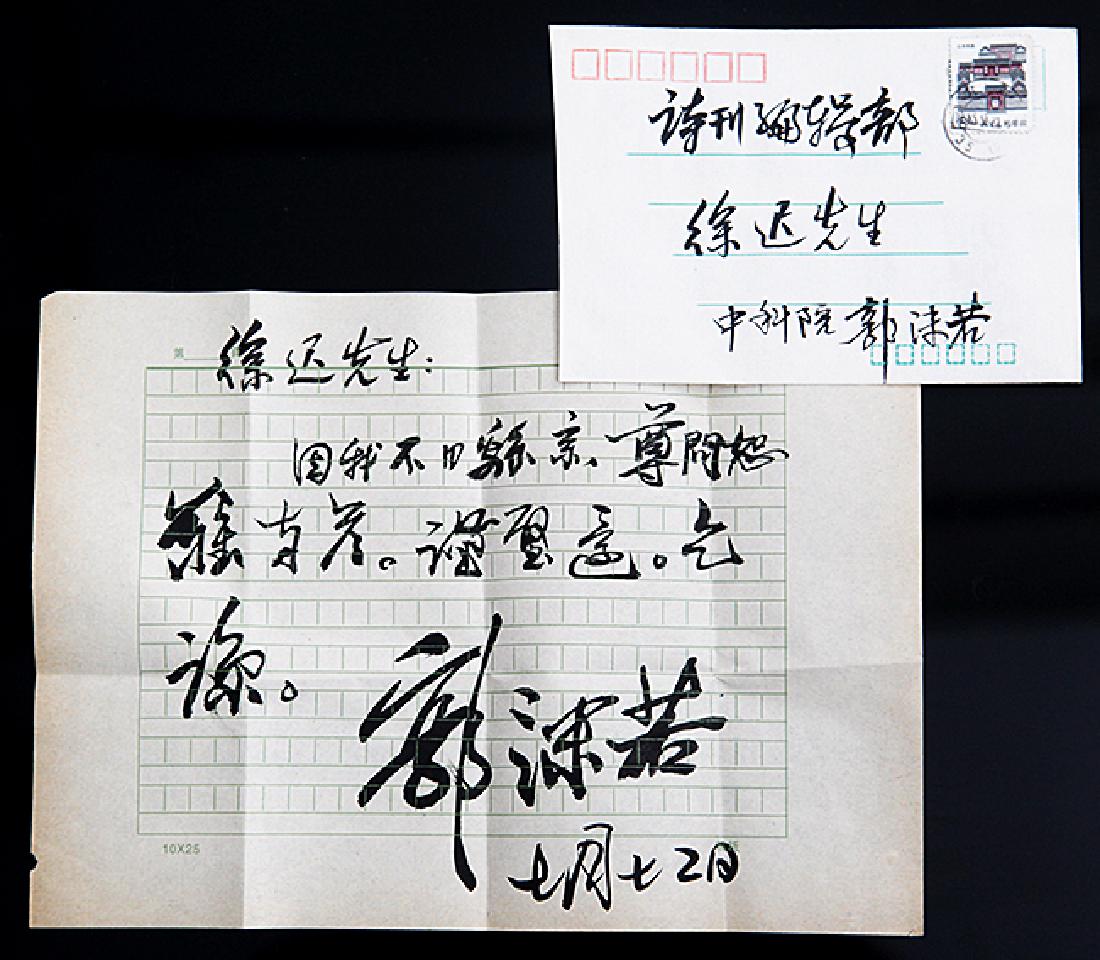 诗刊编辑部
徐迟先生
中科院 郭沫若
第
徐迟先生:
因我不日离京、尊问恕
难专答。谨壁还。乞
谅。
郭沫若
七月十二日
10X25